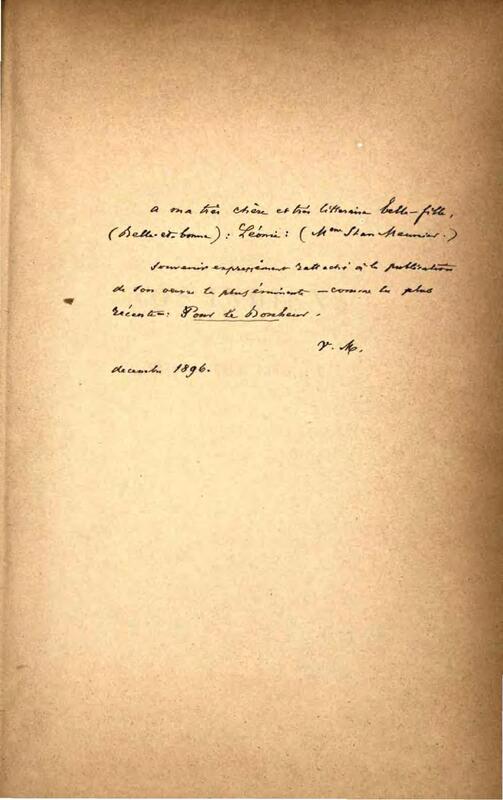 a ma très chère et très litteraire belle-fille,
(Belle-et-bonne) : Léonie : (Mme Stan Meunier.)
Souvenir expressément rattaché à la publication
de son œuvre la plus éminente — comme la plus
récente : Pour le Bonheur.
V. M.
decembre 1896.